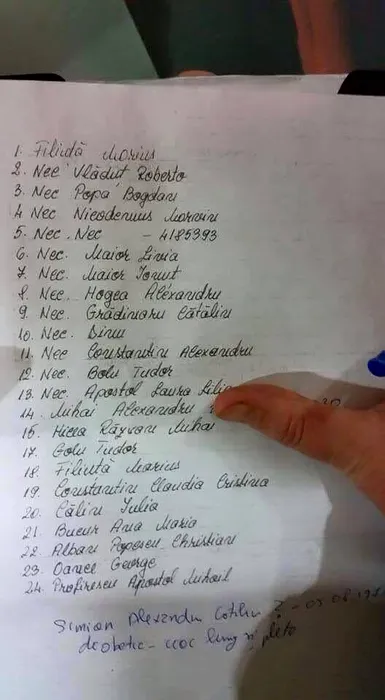 1. Filiută Marius
2. Nec Vlăduț Roberto
3. Nec Popa Bogdan
4 Nec Nicodemus Marvin
5. Nec. Nec - 4185393
6. Nec. Maior Livia
7. Nec. Maior Ionut
8. Nec. Hogea Alexandru
9. Nec. Grădinaru Cătălin
10. Nec. Dinu
11. Nec Constantin Alexandru
12. Nec. Golu Tudor
13. Nec. Apostol Laura Lilia
14. Mihai Alexandru
15. Hicea Răzvan Mihai
17. Golu Tudor
18. Filiută Marius
19. Constantin Claudia Cristina
20. Călin Iulia
21. Bucur Ana Maria
22. Alban Popescu Christian
23. Oance George
24. Profirescu Apostol Mihail
Simion Alexandru ? - 03 08
diabetic - lung